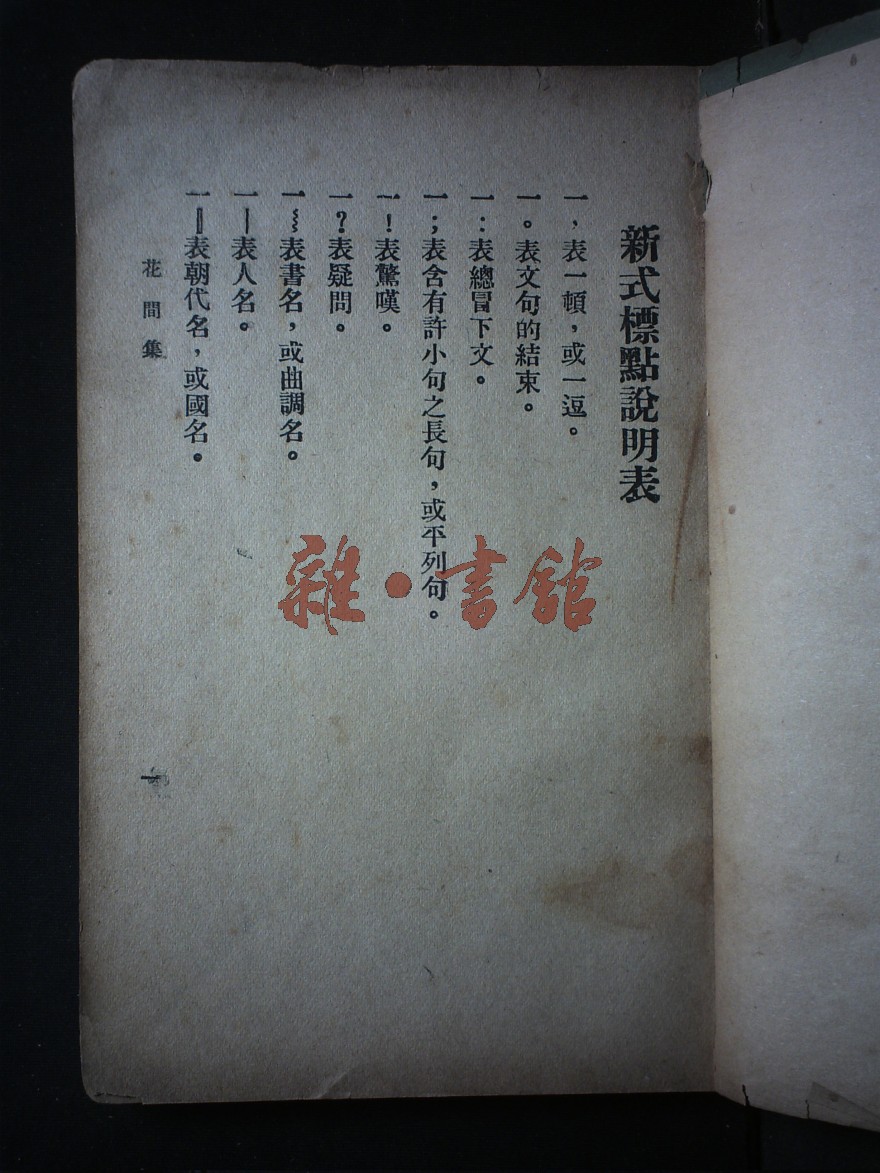 新式標點說明表
一、表一頓，或一逗。
一。表文句的結束。
一：表總冒下文。
一；表含有許小句之長句，或平列句。
一！表驚嘆。
一？表疑問。
一﹏表書名，或曲調名。
一｜表人名。
一‖表朝代名，或國名。
花間集
一
雜•書館